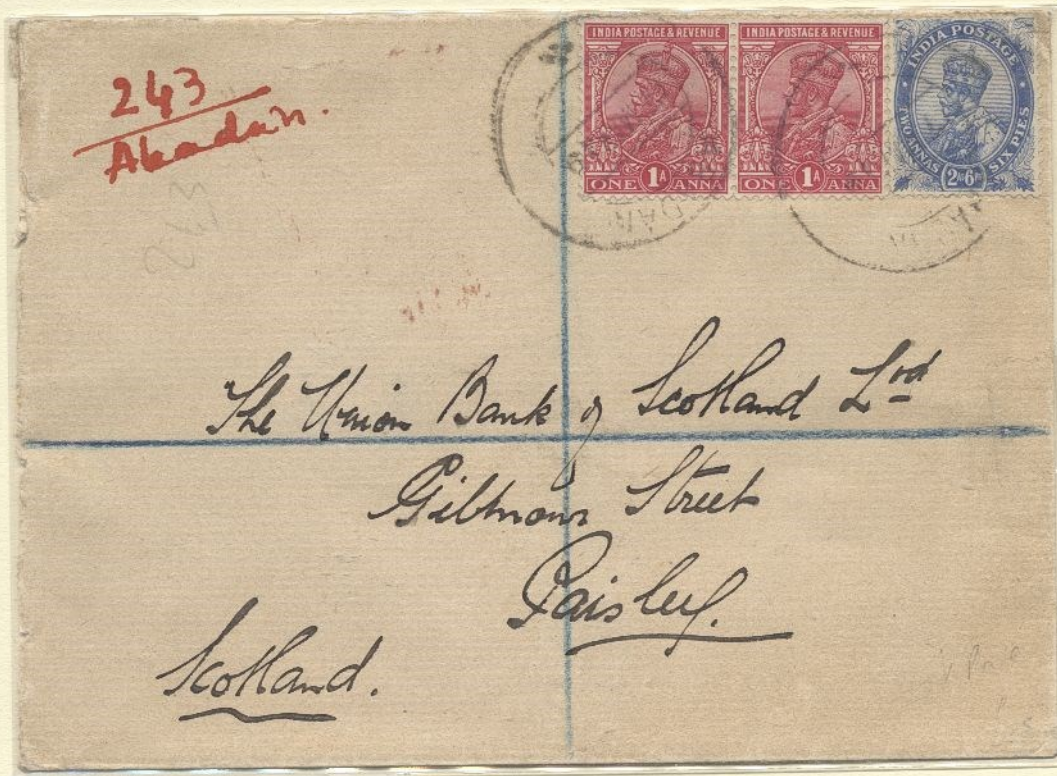 243
Abadan.
INDIA POSTAGE & REVENUE
1A
ONE ANNA
INDIA POSTAGE & REVENUE
1A
ONE ANNA
INDIA POSTAGE
TWO ANNAS SIX PIES
2As6Ps
The Union Bank of Scotland Ltd
Gilmour Street
Paisley.
Scotland.